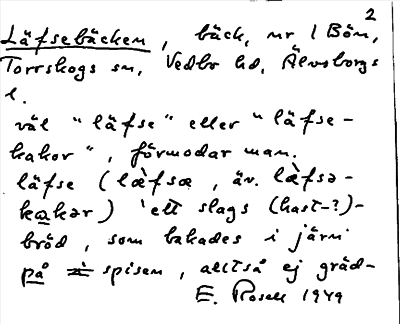 2
Läfsebäcken, bäck, nr 1 Bön,
Torrskogs sn, Vedbo hd, Älvsborgs
l.
väl "läfse" eller "läfse-
kakor", förmodar man.
läfse (læ̀fsæ, äv. læ̀fsə-
kakər) 'ett slags (hast-?)-
bröd, som bakades i järn
på i spisen, alltså ej gräd-
E. Rosell 1949